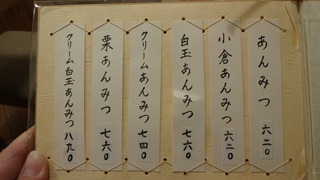 あんみつ 六二〇
小倉あんみつ 六二〇
白玉あんみつ 七六〇
クリームあんみつ 七四〇
栗あんみつ 七六〇
クリーム白玉あんみつ 八九〇